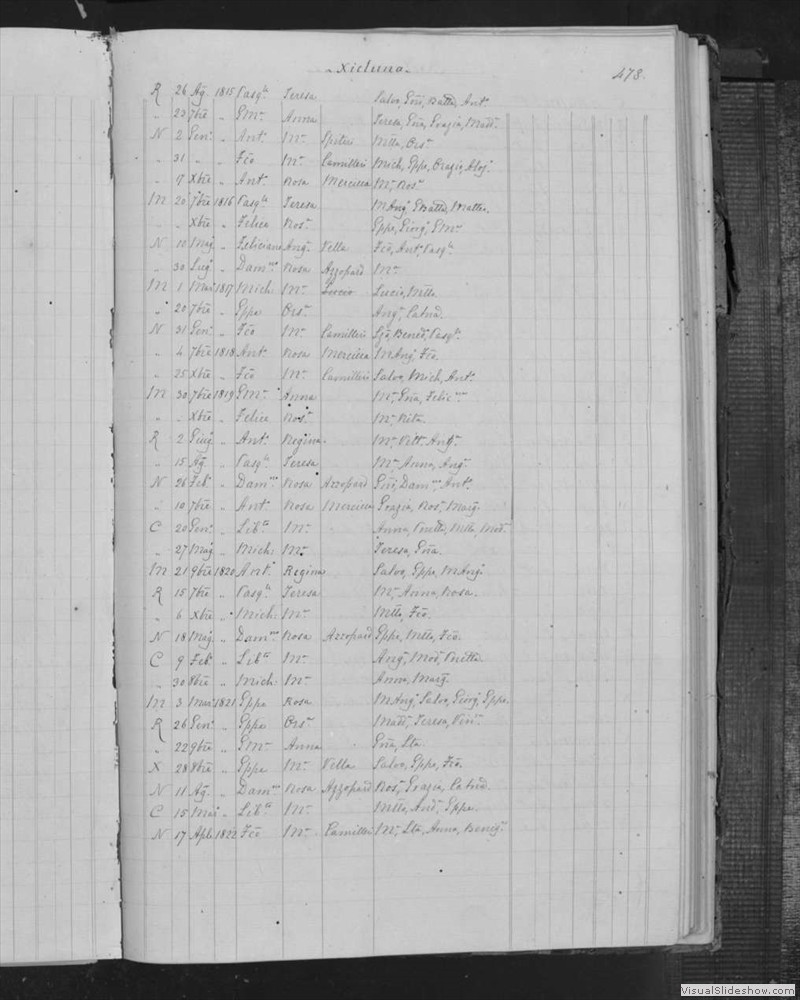 Xicluna
478.
R 26 Ag. 1815 Pasq.le Teresa Salvo, Gio, Batta, Ant.
" 23 7bre " GMa. Anna Teresa, Gna, Grazia, Mad.
N 2 Gen. " Ant. Ma. Spiteri Mtta, Ors.
" 31 " " Fco Ma. Camilleri Mich, Gppe, Orazio, Aloj.
" 17 Xbre " Ant. Rosa Mercieca Ma. Ros.
M 20 7bre 1816 Pasq.le Teresa MAng. GBatta, Matteo.
" " Xbre " Felice Ros. Gppe, Giorg. GMa.
N 10 Mag. " Feliciano Ang. Vella Fco, Ant. Pasq.le
" 30 Lug. " Dam.co Rosa Azzopard Ma.
M 1 Mar. 1817 Mich. Ma. Lucio Lucia, Mtta
" 20 7bre " Gppe Ors. Ang. Catna.
N 31 Gen. " Fco Ma. Camilleri Bened, Pasq.le
" 4 7bre 1818 Ant. Rosa Mercieca MAng. Fco.
" 25 Xbre " Fco Ma. Camilleri Salvo, Mich, Ant.
M 30 7bre 1819 GMa. Anna Ma. Gna, Felic.
" " Xbre " Felice Ros. Ma. Rita.
R 2 Giug. " Ant. Regina Ma. Vitt. Ang.
" 15 Ag. " Pasq.le Teresa Ma. Anna, Ang.
N 26 Feb. " Dam.co Rosa Azzopard Gio, Dam.co, Ant.
" 10 7bre " Ant. Rosa Mercieca Grazia, Ros. Marg.
C 20 Gen. " Lib.to Ma. Anna, Mtta, Mod.
" 27 Mag. " Mich. Ma. Teresa, Gna.
M 21 9bre 1820 Ant. Regina Salvo, Gppe, MAng.
R 15 7bre " Pasq.le Teresa Ma. Anna, Rosa.
" 6 Xbre " Mich. Ma. Mtta, Fco.
N 18 Mag. " Dam.co Rosa Azzopard Gppe, Mtta, Fco.
C 9 Feb. " Lib.to Ma. Ang. Mod,
" 30 8bre " Mich. Ma. Anna, Marg.
M 3 Mar. 1821 Gppe Rosa MAng. Salvo, Giorg, Gppe.
R 26 Gen. " Gppe Ors. Matt. Teresa, Vin.
" 22 9bre " GMa. Anna Gna, Lta.
X 28 8bre " Gppe Ma. Vella Salvo, Gppe, Fco.
N 11 Ag. " Dam.co Rosa Azzopard Ros. Grazia, Catna.
C 15 Mar. " Lib.to Ma. Mtta, And. Gppe.
N 17 Aple 1822 Fco Ma. Camilleri Ma. Lta, Anna, Benig.
VisualSlideshow.com